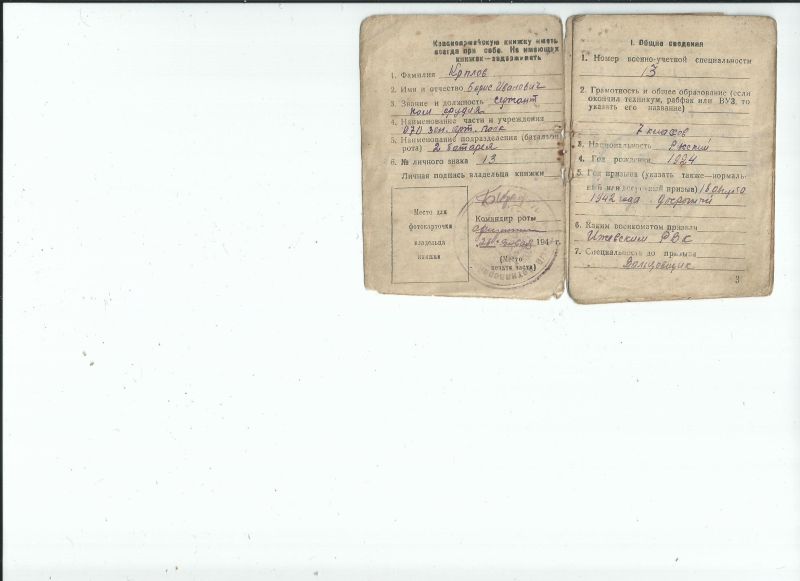 Красноармейскую книжку иметь
всегда при себе. Не имеющих
книжек—задерживать
1. Фамилия
2. Имя и отчество Борис Иванович
3. Звание и должность сержант
ком орудия
4. Наименование части и учреждения
зен. арт. полк
5. Наименование подразделения (батальон,
рота) 2 батарея
6. № личного знака 13
Личная подпись владельца книжки
Место для
фотокарточки
владельца
книжки
Командир роты
января 194 г.
(Место
печати части)
1. Общие сведения
1. Номер военно-учетной специальности
13
2. Грамотность и общее образование (если
окончил техникум, рабфак или ВУЗ, то
указать его название)
7 классов
3. Национальность Русский
4. Год рождения 1924
5. Год призыва (указать также—нормаль-
ный или досрочный призыв) 18 августа
1942 года досрочный
6. Каким военкоматом призван
Ижевским РВК
7. Специальность до призыва
Вальцовщик
3